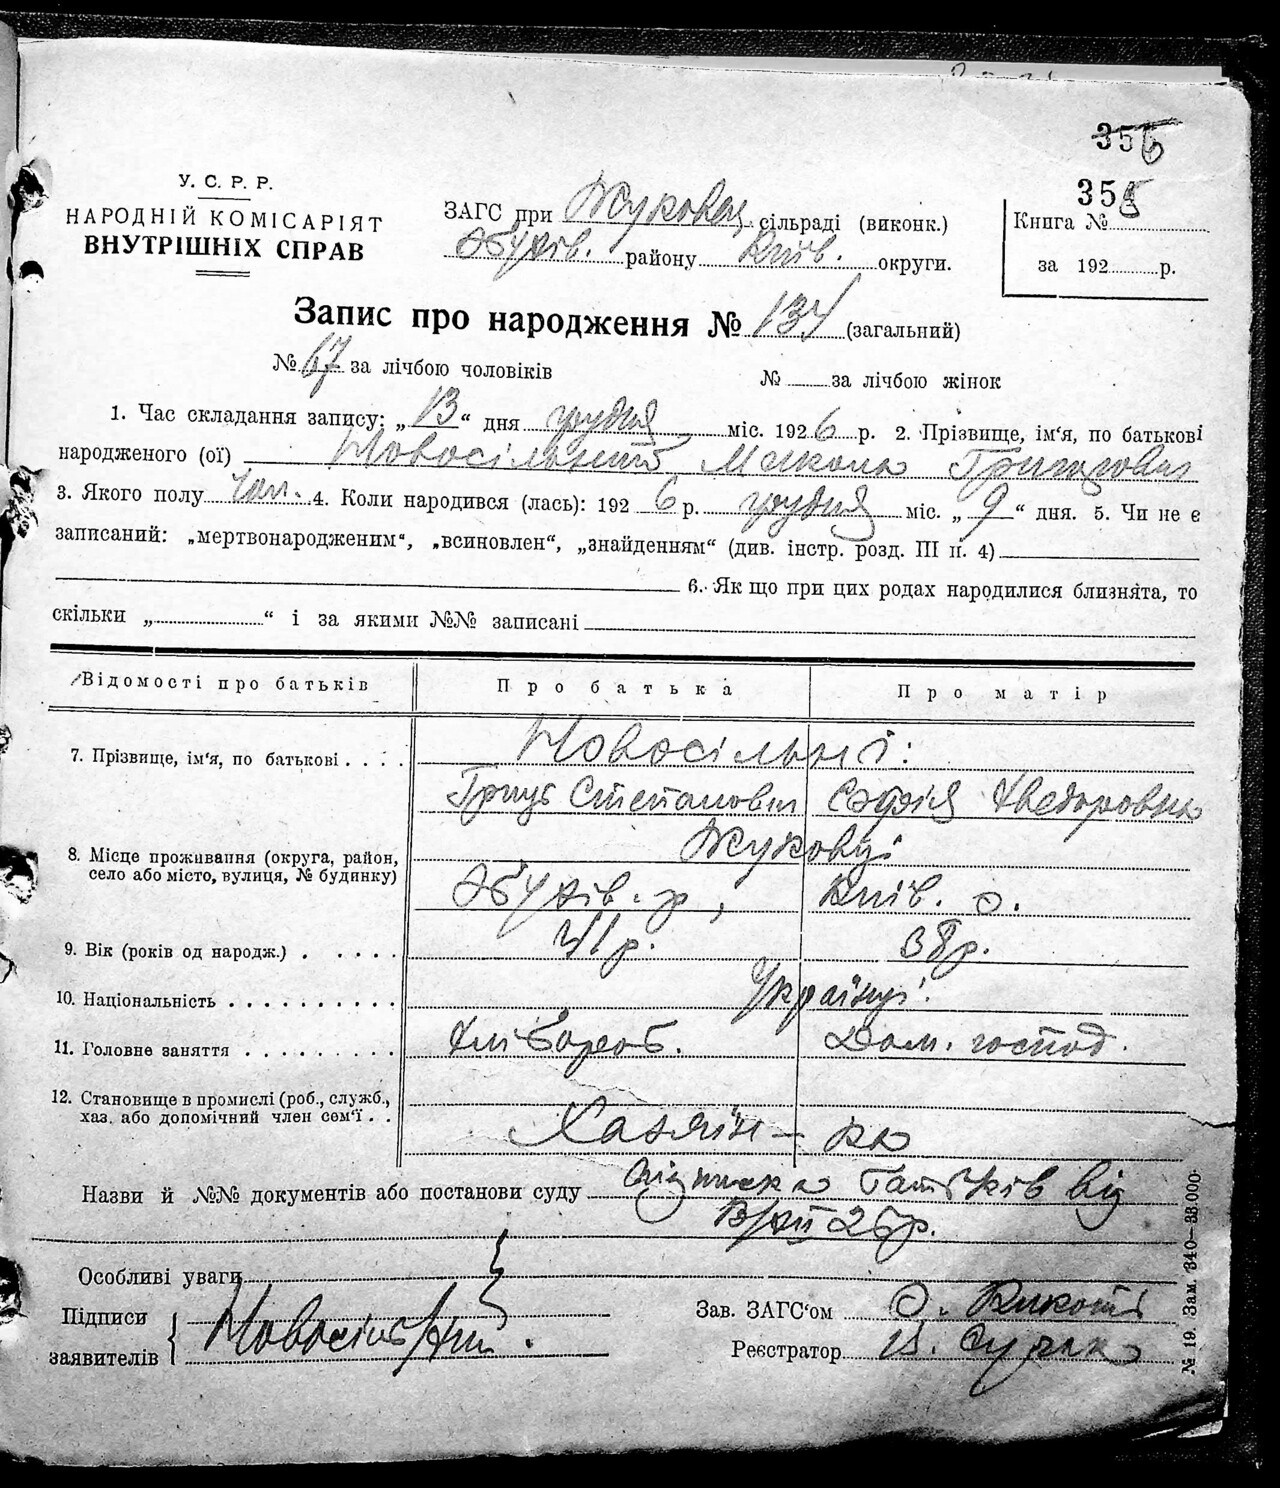 356
355
У. С. Р. Р.
НАРОДНІЙ КОМІСАРІЯТ
ВНУТРІШНІХ СПРАВ
ЗАГС при Жуковец. сільраді (виконк.)
Обухів. району Київ. округи.
Книга №
за 192 р.
Запис про народження № 134 (загальний)
№ 67 за лічбою чоловіків № за лічбою жінок
1. Час складання запису: „13“ дня грудня міс. 1926 р. 2. Прізвище, ім'я, по батькові
народженого (ої) Новосільний Микола Григорович
3. Якого полу чол. 4. Коли народився (лась): 1926 р. грудня міс. „9“ дня. 5. Чи не є
записаний: „мертвонародженим“, „всиновлен“, „знайденням“ (див. інстр. розд. III п. 4)
6. Як що при цих родах народилися близнята, то
скільки „ “ і за якими №№ записані
Відомості про батьків Про батька Про матір
7. Прізвище, ім'я, по батькові Новосільні:
Гриць Степанович Софія Хведоровна
8. Місце проживання (округа, район, село або місто, вулиця, № будинку) Жуковці
Обухів. р, Київ. о.
9. Вік (років од народж.) 41 р. 38 р.
10. Національність Українці.
11. Головне заняття Хлібороб. Дом. господ.
12. Становище в промислі (роб., служб.,
хаз. або допомічний член сем'ї Хазяїн - ка
Назви й №№ документів або постанови суду Підписка батьків від
13/XII 26 р.
Особливі уваги
Підписи
заявителів Новосільний.
Зав. ЗАГС'ом О.
Реєстратор
№ 19. Зам. 340—38.000.